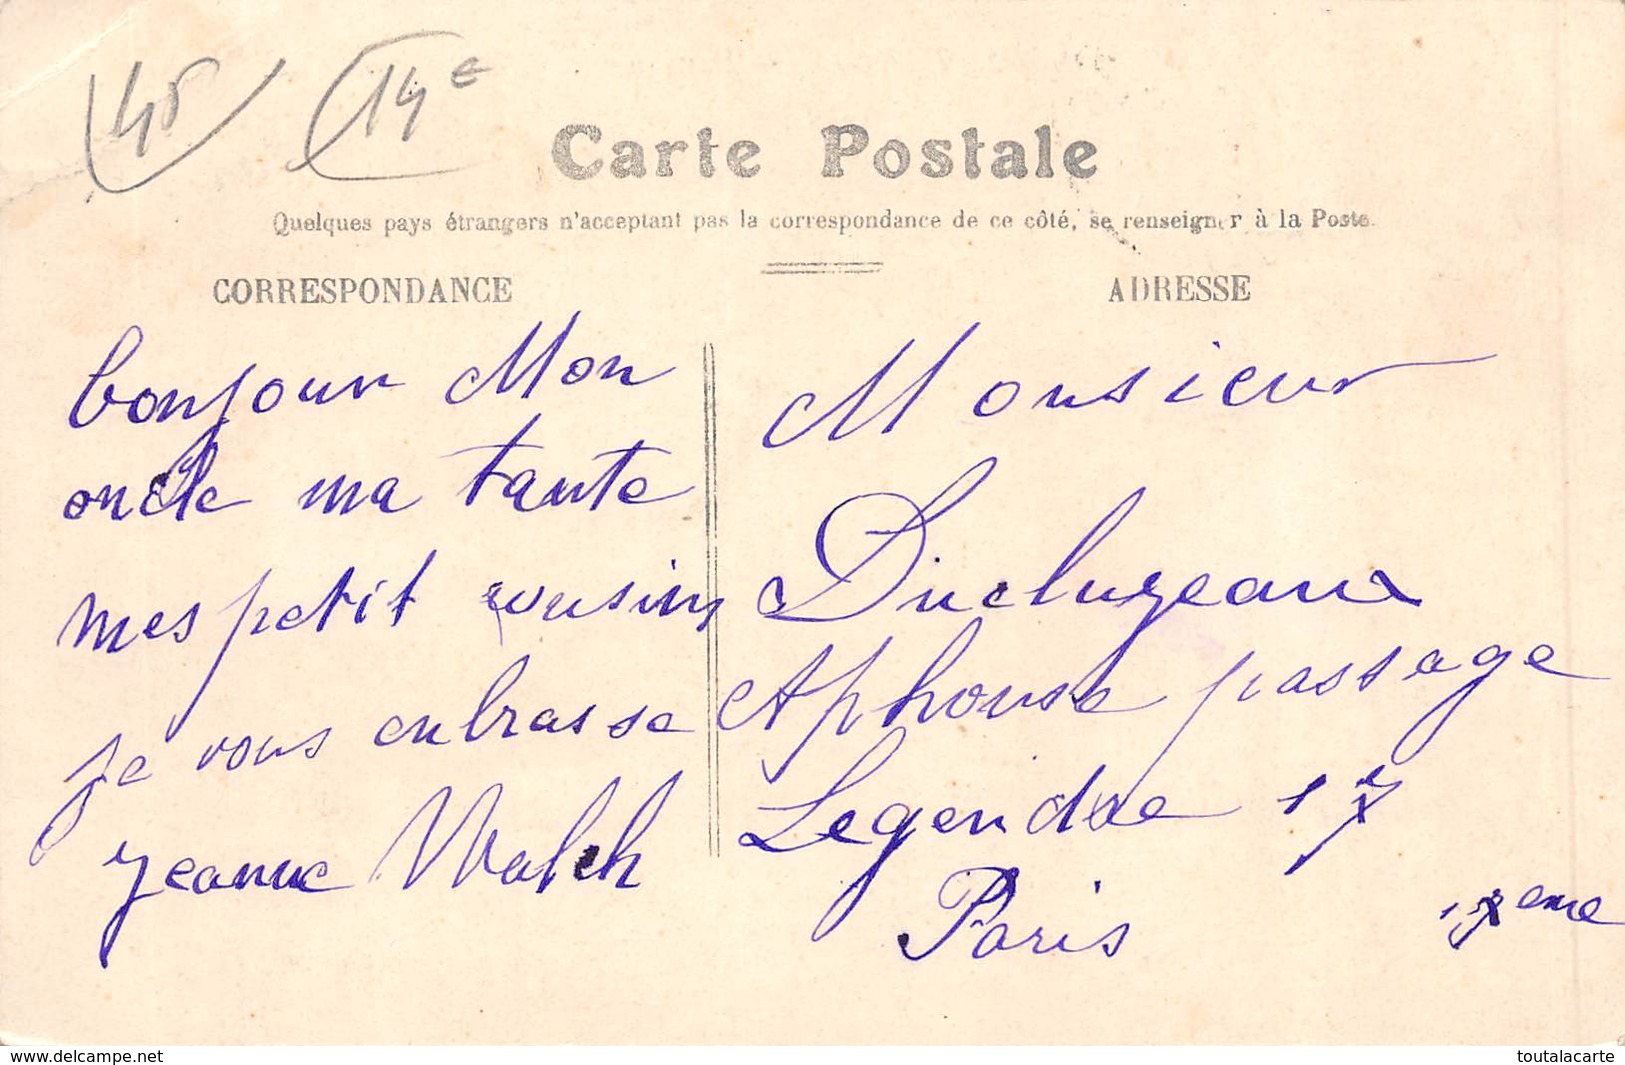 45 14e
Carte Postale
Quelques pays étrangers n'acceptant pas la correspondance de ce côté, se renseigner à la Poste.
CORRESPONDANCE
bonjour Mon
oncle ma tante
mes petit cousins
je vous enbrasse
jeanne Walch
ADRESSE
Monsieur
Ducluzeaux
Aphonse passage
Legendre 17
Paris 17eme
www.delcampe.net
toutalacarte